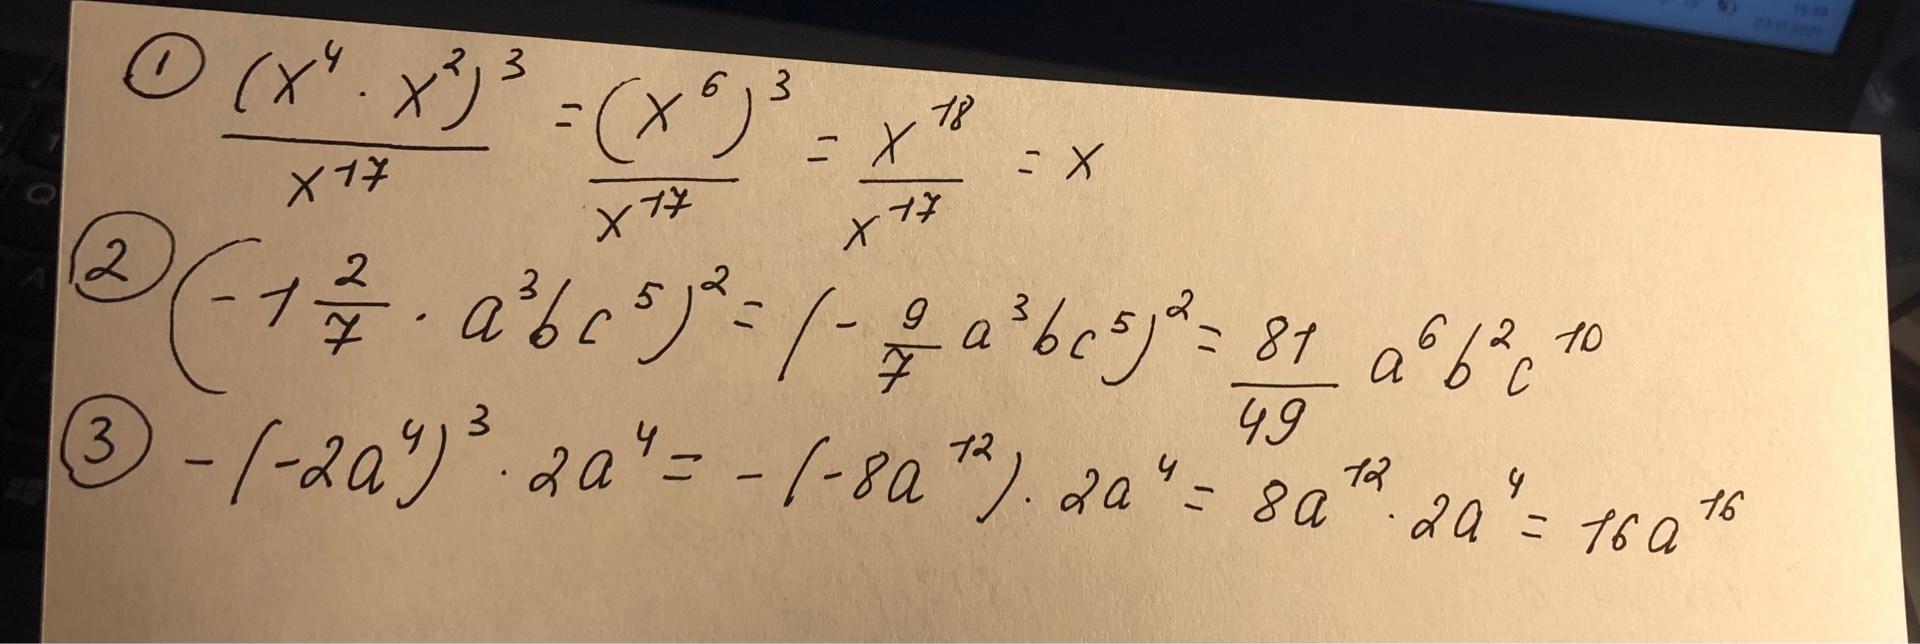 ① (x⁴ · x²)³ / x¹⁷ = (x⁶)³ / x¹⁷ = x¹⁸ / x¹⁷ = x
② (-1 2/7 · a³bc⁵)² = (- 9/7 a³bc⁵)² = 81/49 a⁶b²c¹⁰
③ -(-2a⁴)³ · 2a⁴ = -(-8a¹²) · 2a⁴ = 8a¹² · 2a⁴ = 16a¹⁶